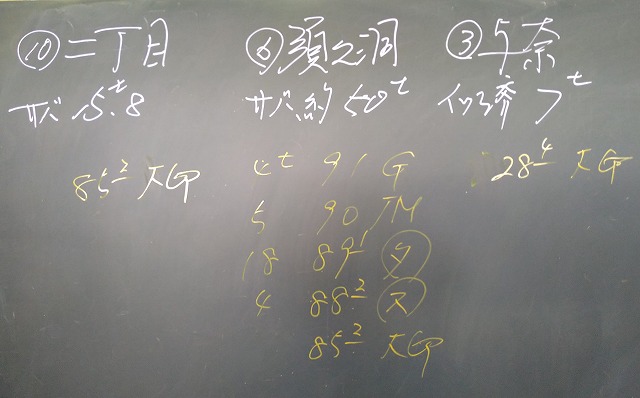 ⑩二丁目
サバ 15.t8
85² 大GP
⑥須之洞
サバ 約50t
91 G
5 90 JM
18 89¹ タ
4 88² ス
85² 大GP
③与奈
7t
28⁴ 大GP